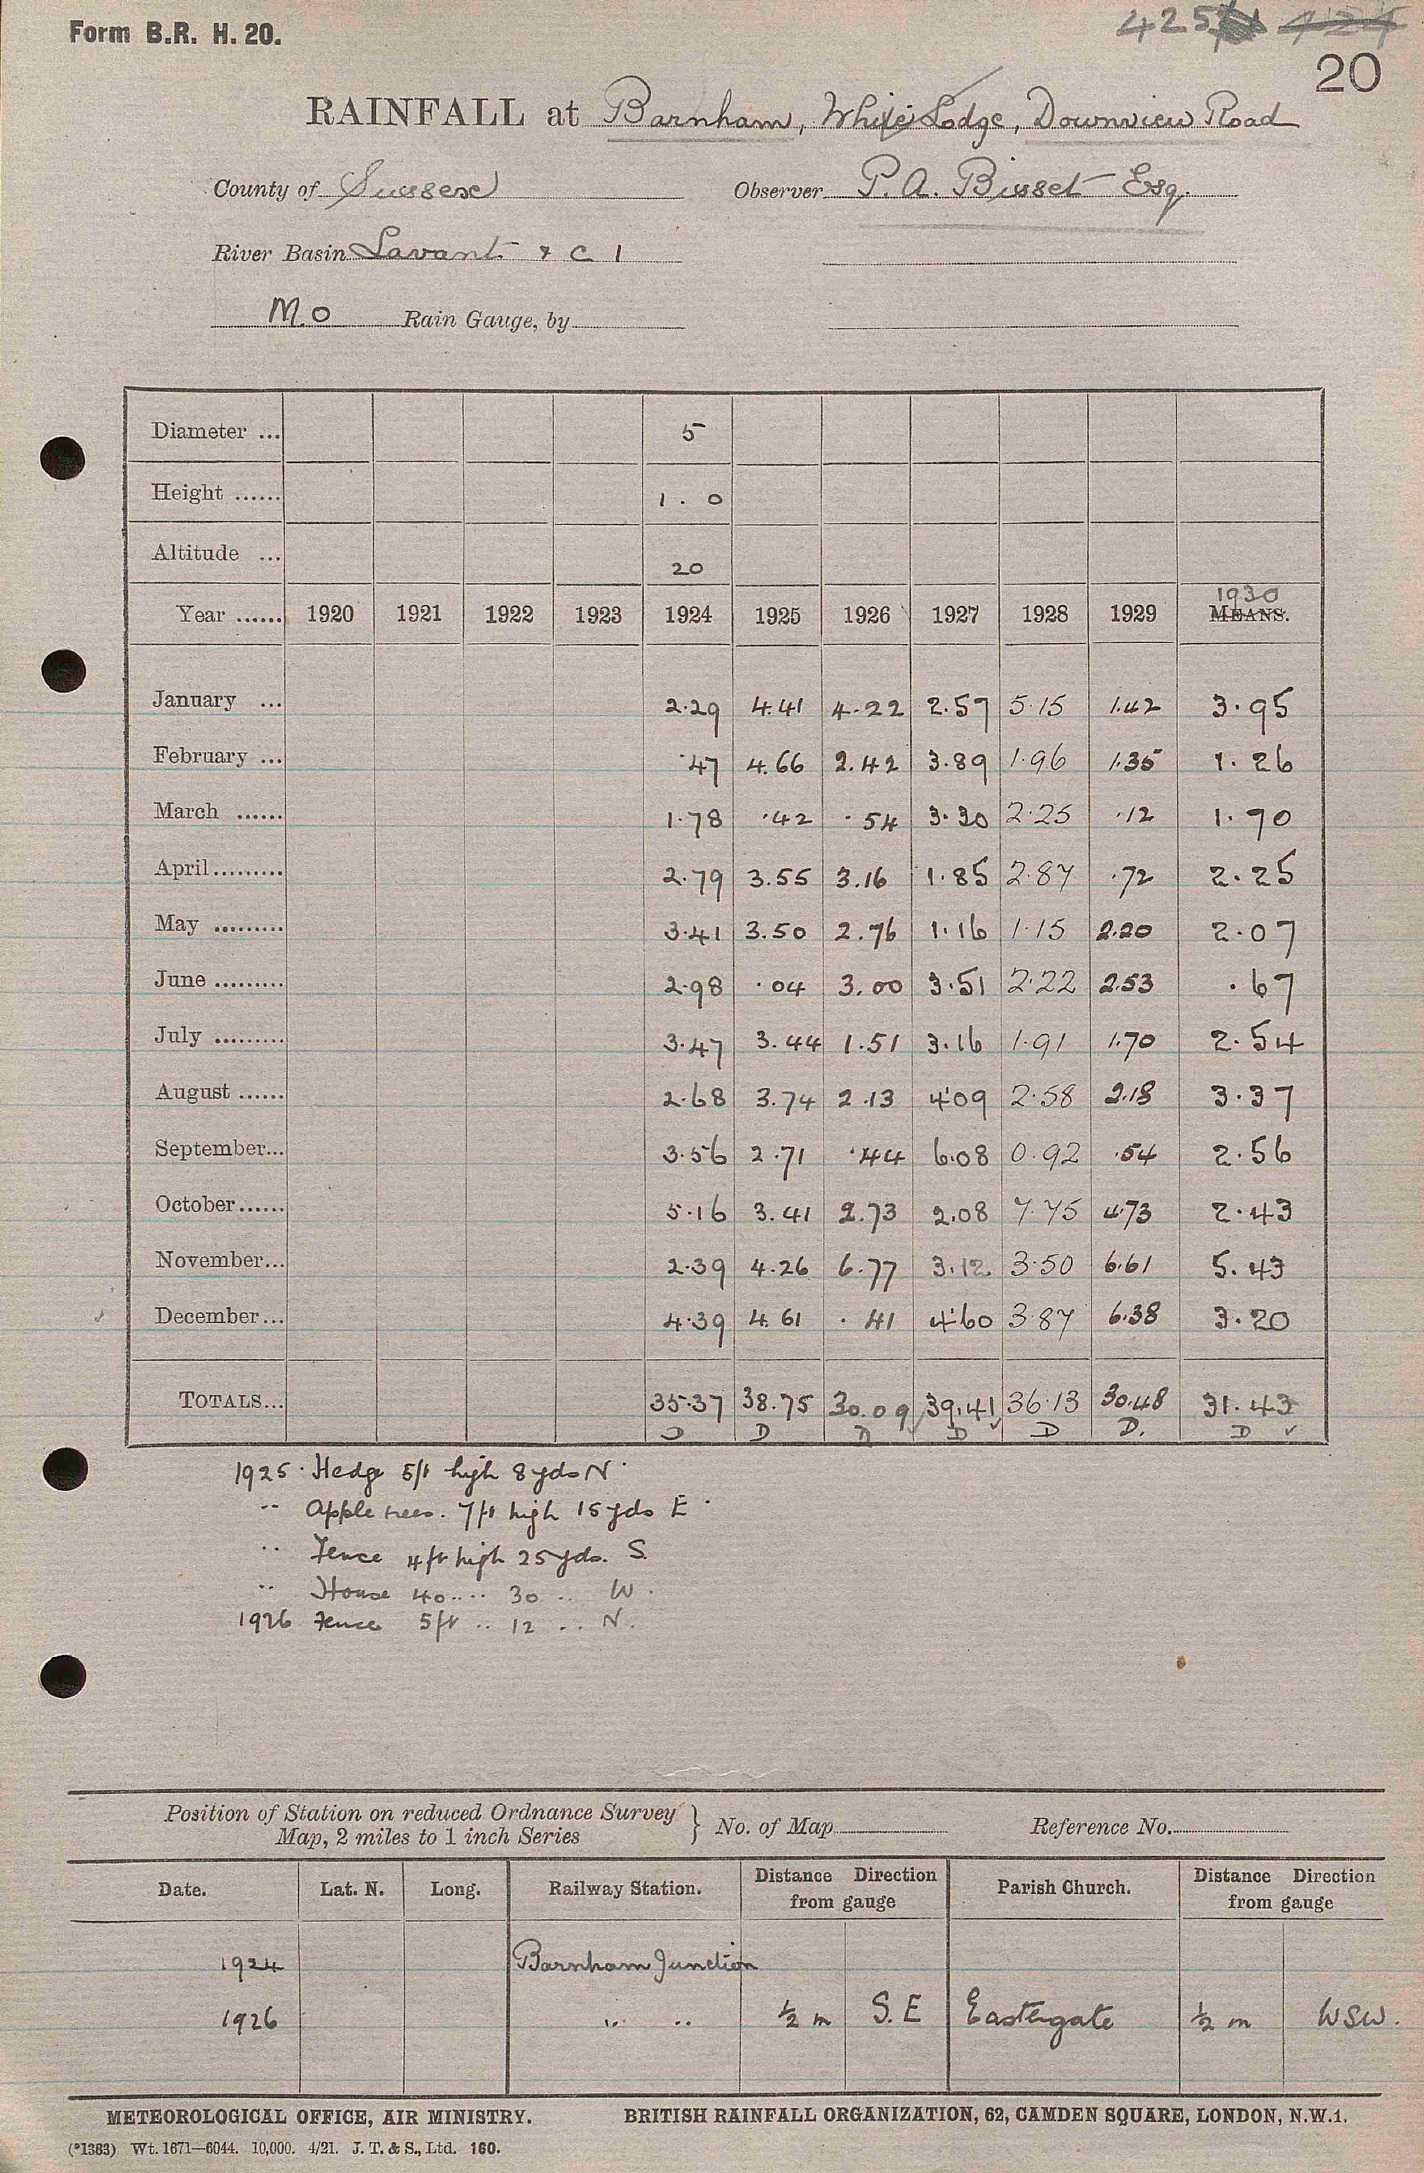 Form B.R. H. 20.
425
424
20
RAINFALL at Barnham, White Lodge, Downview Road
County of Sussex Observer P. A. Bisset Esq.
River Basin Lavant & C 1
M.O Rain Gauge, by
Diameter ... 5
Height ...... 1 . 0
Altitude ... 20
1930
Year ...... 1920 1921 1922 1923 1924 1925 1926 1927 1928 1929 MEANS.
January ... 2.29 4.41 4.22 2.57 5.15 1.42 3.95
February ... .47 4.66 2.42 3.89 1.96 1.35 1.26
March ...... 1.78 .42 .54 3.30 2.25 .12 1.70
April ......... 2.79 3.55 3.16 1.85 2.87 .72 2.25
May ......... 3.41 3.50 2.76 1.16 1.15 2.20 2.07
June ......... 2.98 .04 3.00 3.51 2.22 2.53 .67
July ......... 3.47 3.44 1.51 3.16 1.91 1.70 2.54
August ...... 2.68 3.74 2.13 4.09 2.58 2.18 3.37
September... 3.56 2.71 .44 6.08 0.92 .54 2.56
October...... 5.16 3.41 2.73 2.08 7.75 4.73 2.43
November... 2.39 4.26 6.77 3.12 3.50 6.61 5.43
December... 4.39 4.61 .41 4.60 3.87 6.38 3.20
TOTALS... 35.37 38.75 30.09 39.41 36.13 30.48 31.43
D D D D D D. D
1925 . Hedge 5ft high 8 yds N .
" Apple trees. 7ft high 15 yds E .
" Fence 4ft high 25 yds. S.
" House 40 .. .. 30 .. W .
1926 Fence 5ft .. 12 .. .. N.
Position of Station on reduced Ordnance Survey
Map, 2 miles to 1 inch Series } No. of Map Reference No.
Date. Lat. N. Long. Railway Station. Distance Direction from gauge Parish Church. Distance Direction from gauge
1924 Barnham Junction
1926 " " ½ m S. E Eastergate ½ m WSW.
METEOROLOGICAL OFFICE, AIR MINISTRY. BRITISH RAINFALL ORGANIZATION, 62, CAMDEN SQUARE, LONDON, N.W.1.
(*1383) Wt. 1671—6044. 10,000. 4/21. J. T. & S., Ltd. 160.